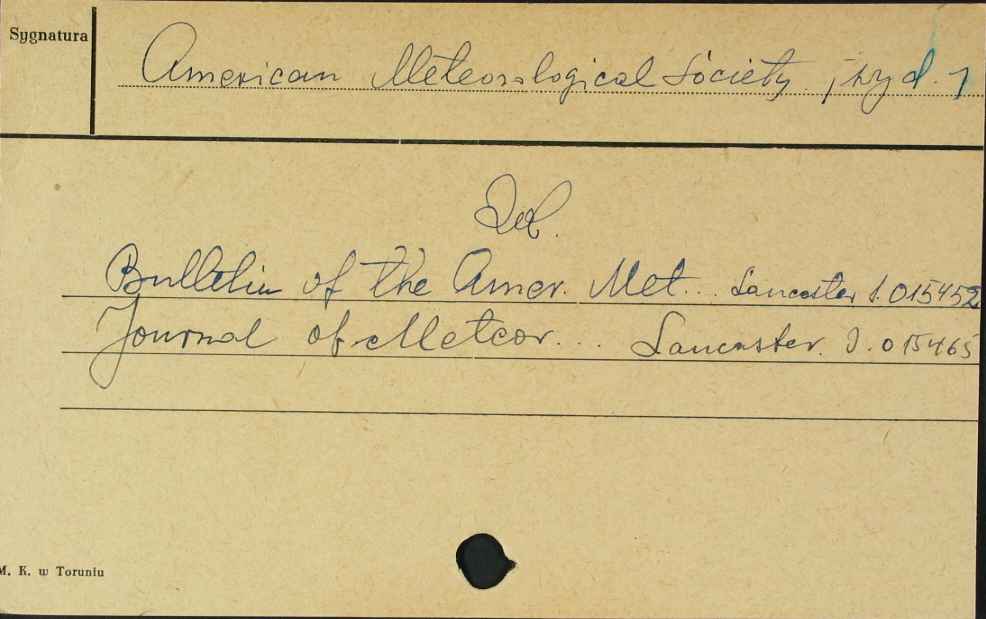 Sygnatura
American Meteorological Society. [wyd.]
Bulletin of the Amer. Met... Lancaster 015452
Journal of Meteor... Lancaster. 015465
M. K. w Toruniu